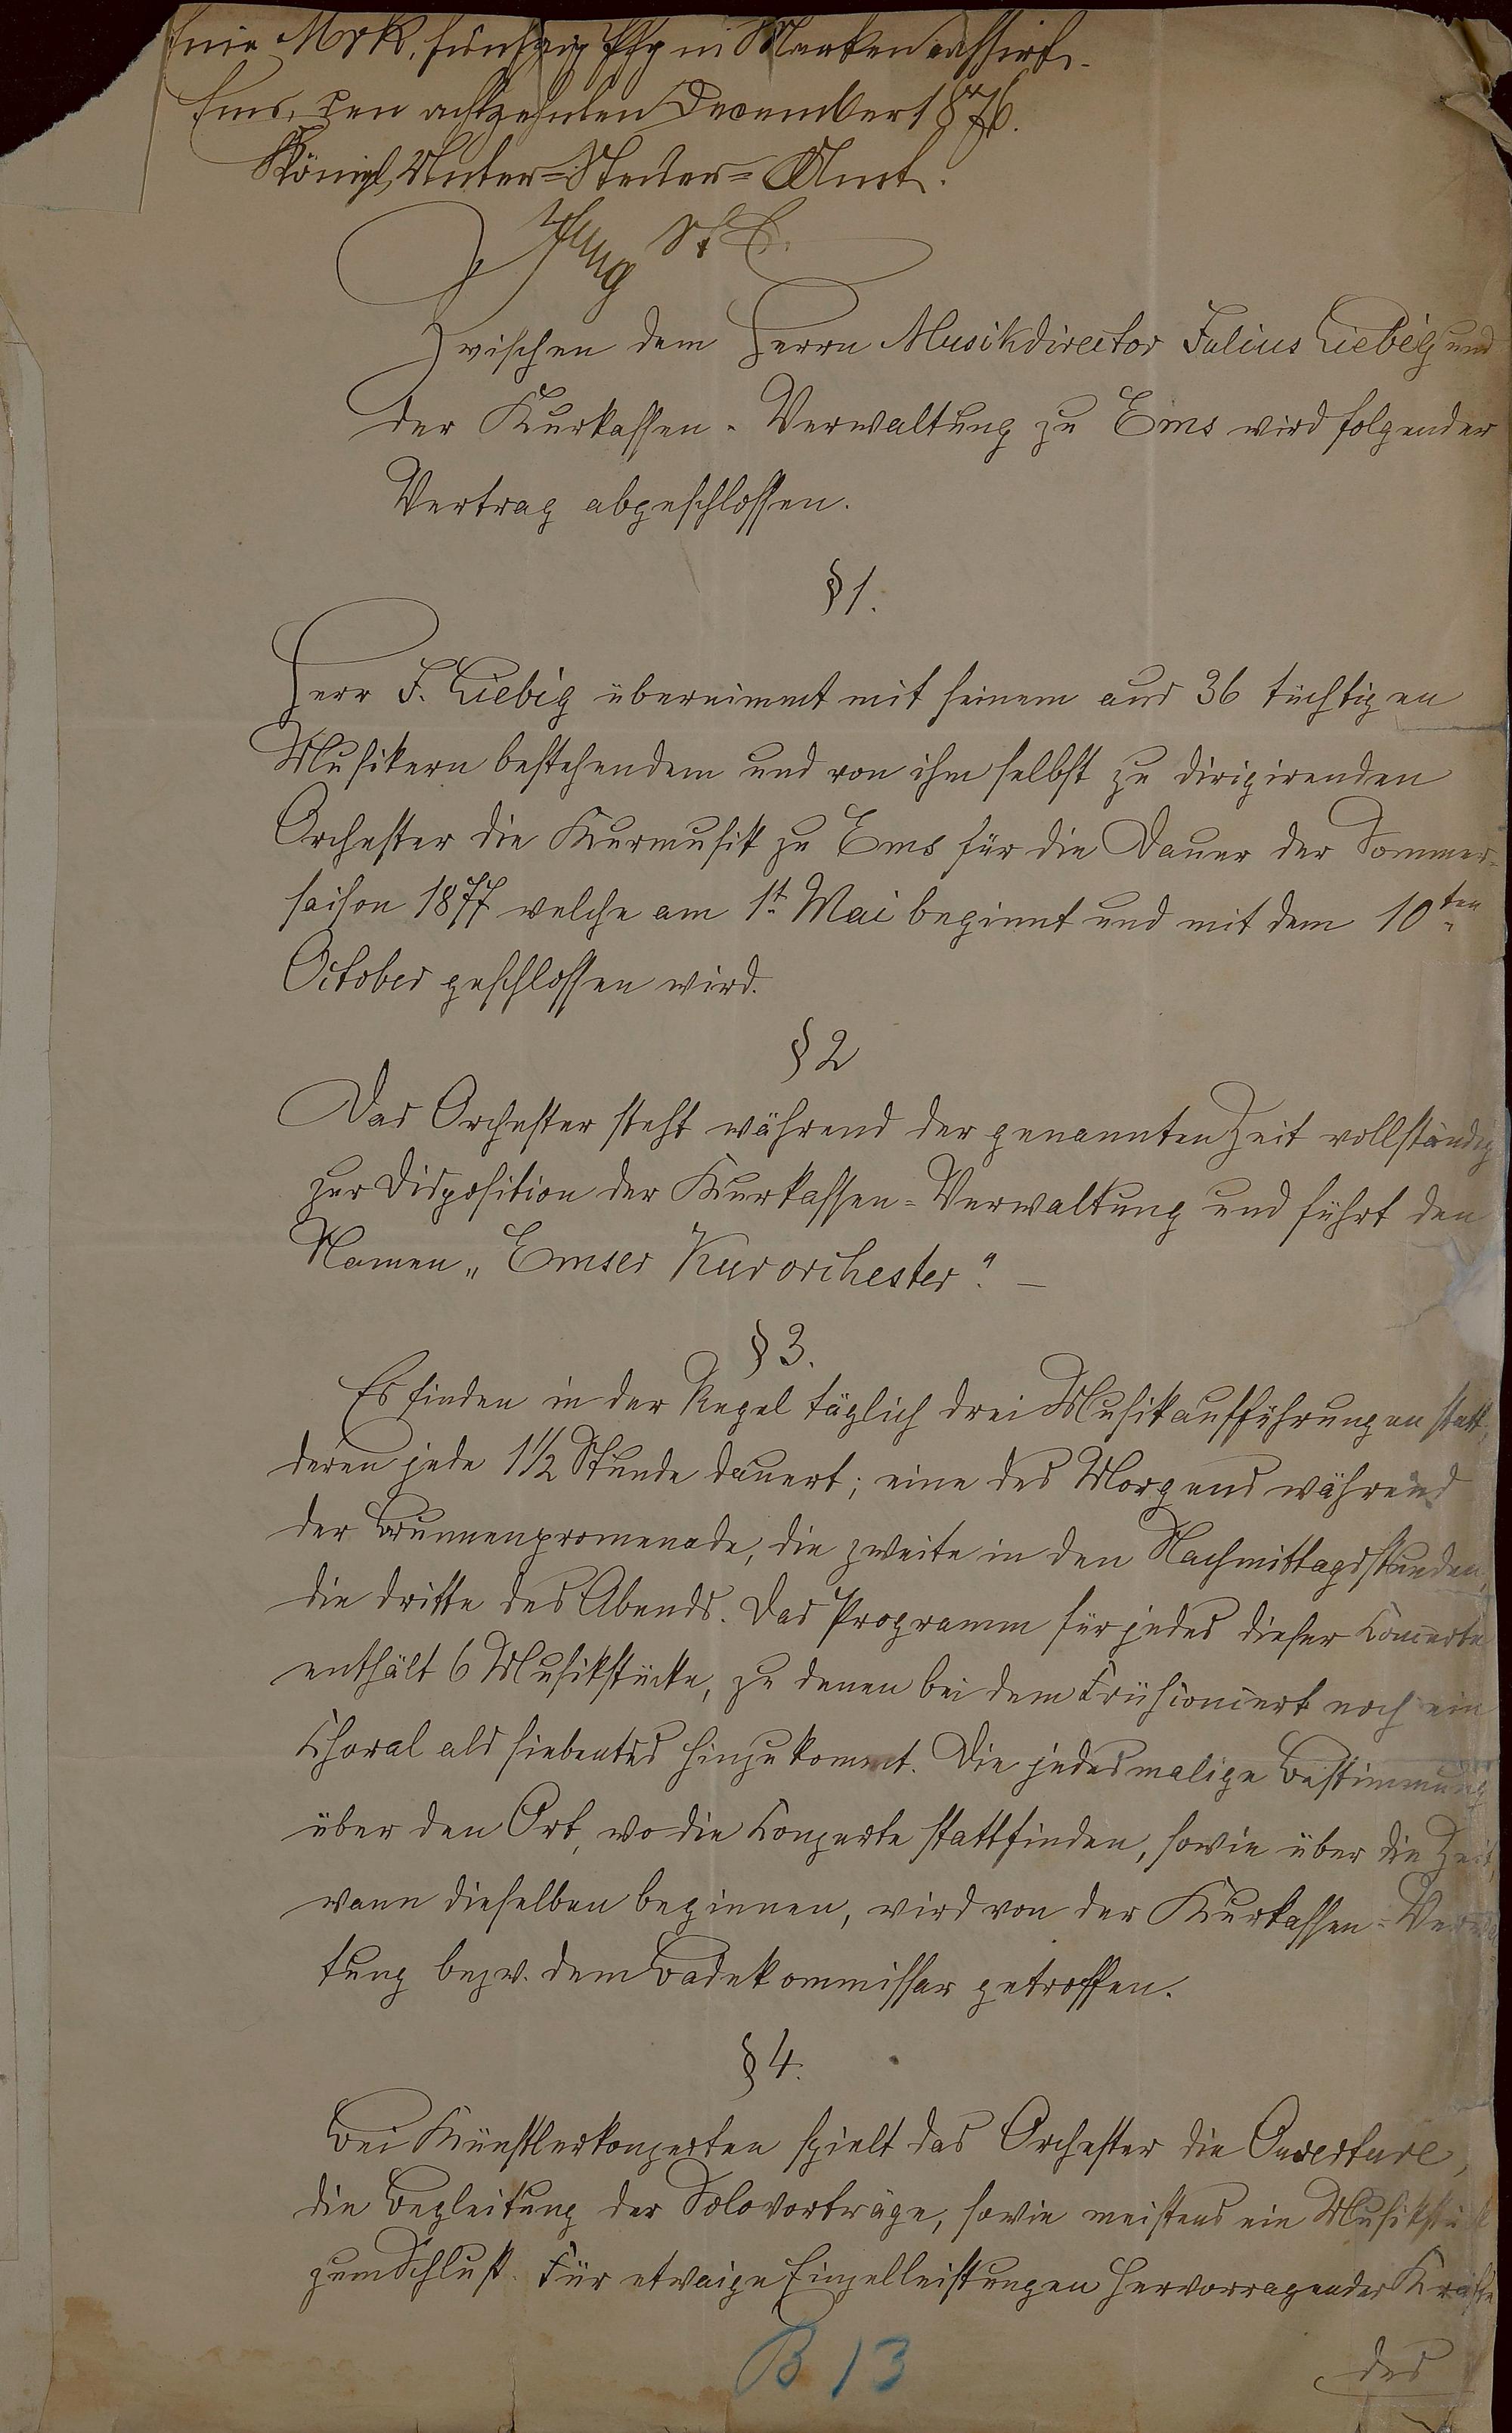 Eine Mrk. fünfzig Pfg in Marken cassirt.
Ems, den achtzehnten December 1876.
Königl. Unter=Steuer=Amt.
Jung
Zwischen dem Herrn Musikdirector Julius Liebig und
der Kurkassen-Verwaltung zu Ems wird folgender
Vertrag abgeschlossen.
§ 1.
Herr J. Liebig übernimmt mit seinem aus 36 tüchtigen
Musikern bestehendem und von ihm selbst zu dirigirenden
Orchester die Kurmusik zu Ems für die Dauer der Sommer-
saison 1877 welche am 1t. Mai beginnt und mit dem 10ten
October geschlossen wird.
§ 2
Das Orchester steht während der genannten Zeit vollständig
zur Disposition der Kurkassen=Verwaltung und führt den
Namen „Emser Kurorchester“. —
§ 3.
Es finden in der Regel täglich drei Musikaufführungen statt,
deren jede 1½ Stunde dauert; eine des Morgens während
der Brunnenpromenade, die zweite in den Nachmittagsstunden,
die dritte des Abends. Das Programm für jedes dieser Concerte
enthält 6 Musikstücke, zu denen bei dem Frühconcert noch ein
Choral als siebentes hinzukommt. Die jedesmalige Bestimmung
über den Ort, wo die Konzerte stattfinden, sowie über die Zeit,
wann dieselben beginnen, wird von der Kurkassen=Verwal-
tung bezw. dem Badekommissar getroffen.
§ 4.
Bei Künstlerkonzerten spielt das Orchester die Ouverture,
die Begleitung der Solovorträge, sowie meistens ein Musikstück
zum Schluß. Für etwaige Einzelleistungen hervorragender Kräfte
des
B 13